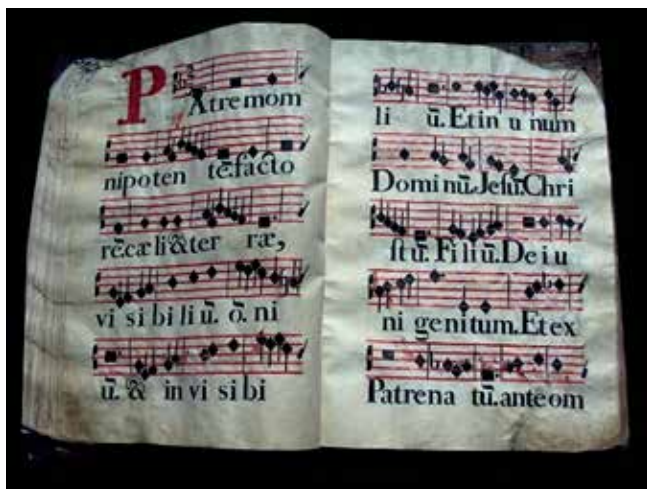 PAtremom
nipoten tē.facto
rē.cæli&ter ræ,
vi si bi li ū. ō. ni
ū. & in vi si bi
li ū. Et in u num
Domi nū.Jesū.Chri
stū. Fi li ū. De i u
ni genitum.Et ex
Patrena tū.anteom